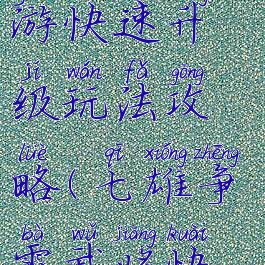 游快速升
jí wán fǎ gōng
级玩法攻
lüè qī xióng zhēng
略(七雄争
bà wǔ jiàng kuài
霸武将快